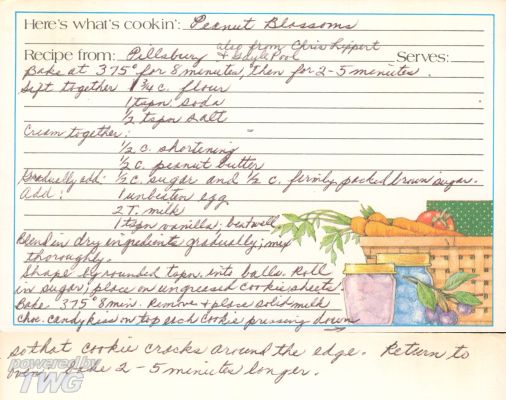 Here's what's cookin': Peanut Blossoms
also from Chris Lippert
Recipe from: Pillsbury & Gayle Pool Serves:
Bake at 375° for 8 minutes, then for 2-5 minutes.
Sift together 1 3/4 c. flour
1 tspn. soda
1/2 tspn salt
Cream together:
1/2 c. shortening
1/2 c. peanut butter
Gradually add: 1/2 c. sugar and 1/2 c. firmly packed brown sugar.
Add: 1 unbeaten egg
2 T. milk
1 tspn vanilla; beat well.
Blend in dry ingredients gradually; mix
thoroughly.
Shape by rounded tspn. into balls. Roll
in sugar; place on ungreased cookie sheets.
Bake 375° 8 min. Remove & place solid milk
choc. candy kiss on top each cookie pressing down
so that cookie cracks around the edge. Return to
oven. Bake 2-5 minutes longer.
powered by
TWG